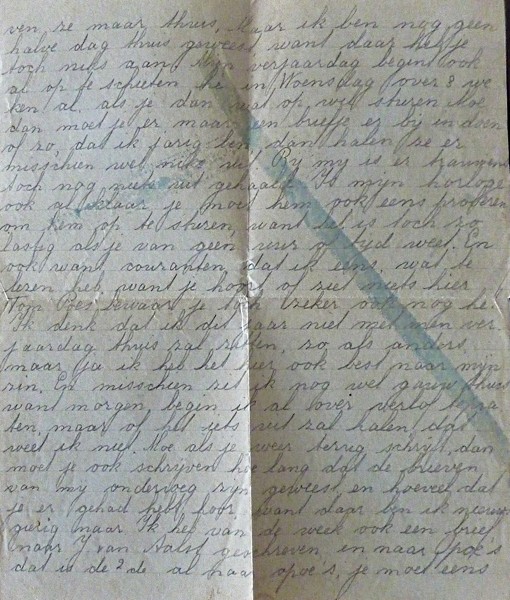 ven ze maar thuis. Maar ik ben nog geen
halve dag thuis geweest want daar heb je
toch niks aan. Mijn verjaardag begint ook
al op te schieten he in Woensdag over 8 we
ken al. als je dan wat op wil sturen Moe
dan moet je er maar een briefje er by in doen
of zo, dat ik jarig ben, dan halen ze er
misschien wel niks uit. By my is er trouwens
toch nog niets uit gehaald. Is mijn horloge
ook al klaar je moet hem ook eens proberen
om hem op te sturen, want het is toch zo
lastig als je van geen uur of tijd weet. En
ook want couranten, dat ik eens wat te
lezen heb, want je hoort of ziet niets hier
bewaar je toch zeker ook nog he.
Ik denk dat ik dit jaar niet met mijn ver
jaardag thuis zal zitten, zo als anders,
maar ja ik heb het hier ook best naar mijn
zin. En misschien zit ik nog wel gauw thuis
want morgen, begin ik al over verlof te pra
ten, maar of het iets uit zal halen dat
weet ik niet. Moe als je weer terug schrijf, dan
moet je ook schrijven hoe lang dat de brieven
van my onderweg zijn geweest, en hoeveel dat
je er gehad hebt, hoor want daar ben ik nieuws
gierig naar. Ik heb van de week ook een brief
naar J van geschreven, en naar opoe's
dat is de 2de al naar opoe's, je moet eens